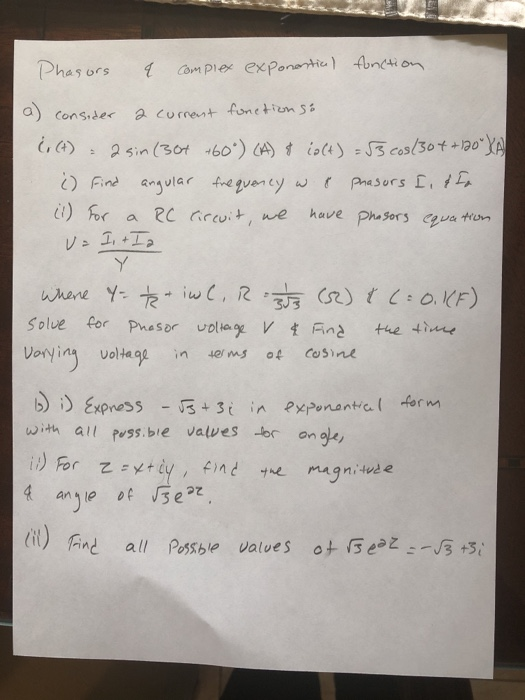 Phasors & complex exponential function
a) consider 2 current functions:
i₁(t) = 2 sin (30t +60°) (A) & i₂(t) = √3 cos(30t +120°)(A)
i) Find angular frequency w & phasors I₁ & I₂
(ii) For a RC circuit, we have phasors equation
V = I₁ + I₂ / Y
where Y = 1/R + iwC, R = 1/3√3 (Ω) & C = 0.1(F)
Solve for Phasor voltage V & Find the time
Varying voltage in terms of cosine
b) i) Express - √3 + 3i in exponential form
with all possible values for angle,
ii) For z = x + iy, find the magnitude
& angle of √3e²ᶻ.
(iii) Find all Possible values of √3e²ᶻ = -√3 +3i